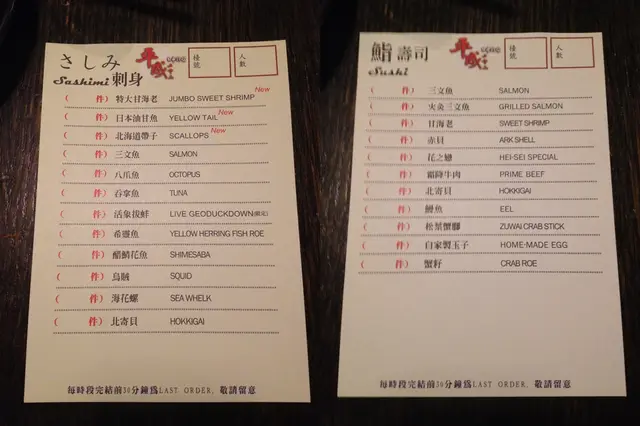 さしみ
Sashimi 刺身
平成
檯號
人數
New
( 件) 特大甘海老 JUMBO SWEET SHRIMP
New
( 件) 日本油甘魚 YELLOW TAIL
New
( 件) 北海道帶子 SCALLOPS
( 件) 三文魚 SALMON
( 件) 八爪魚 OCTOPUS
( 件) 吞拿魚 TUNA
( 件) 活象拔蚌 LIVE GEODUCKDOWN
( 件) 希靈魚 YELLOW HERRING FISH ROE
( 件) 醋鯖花魚 SHIMESABA
( 件) 烏賊 SQUID
( 件) 海花螺 SEA WHELK
( 件) 北寄貝 HOKKIGAI
每時段完結前30分鐘為LAST ORDER, 敬請留意
鮨 壽司
Sushi
平成
檯號
人數
( 件) 三文魚 SALMON
( 件) 火炙三文魚 GRILLED SALMON
( 件) 甘海老 SWEET SHRIMP
( 件) 赤貝 ARK SHELL
( 件) 花之戀 HEI-SEI SPECIAL
( 件) 霜降牛肉 PRIME BEEF
( 件) 北寄貝 HOKKIGAI
( 件) 鰻魚 EEL
( 件) 松葉蟹腳 ZUWAI CRAB STICK
( 件) 自家製玉子 HOME-MADE EGG
( 件) 蟹籽 CRAB ROE
每時段完結前30分鐘為LAST ORDER, 敬請留意